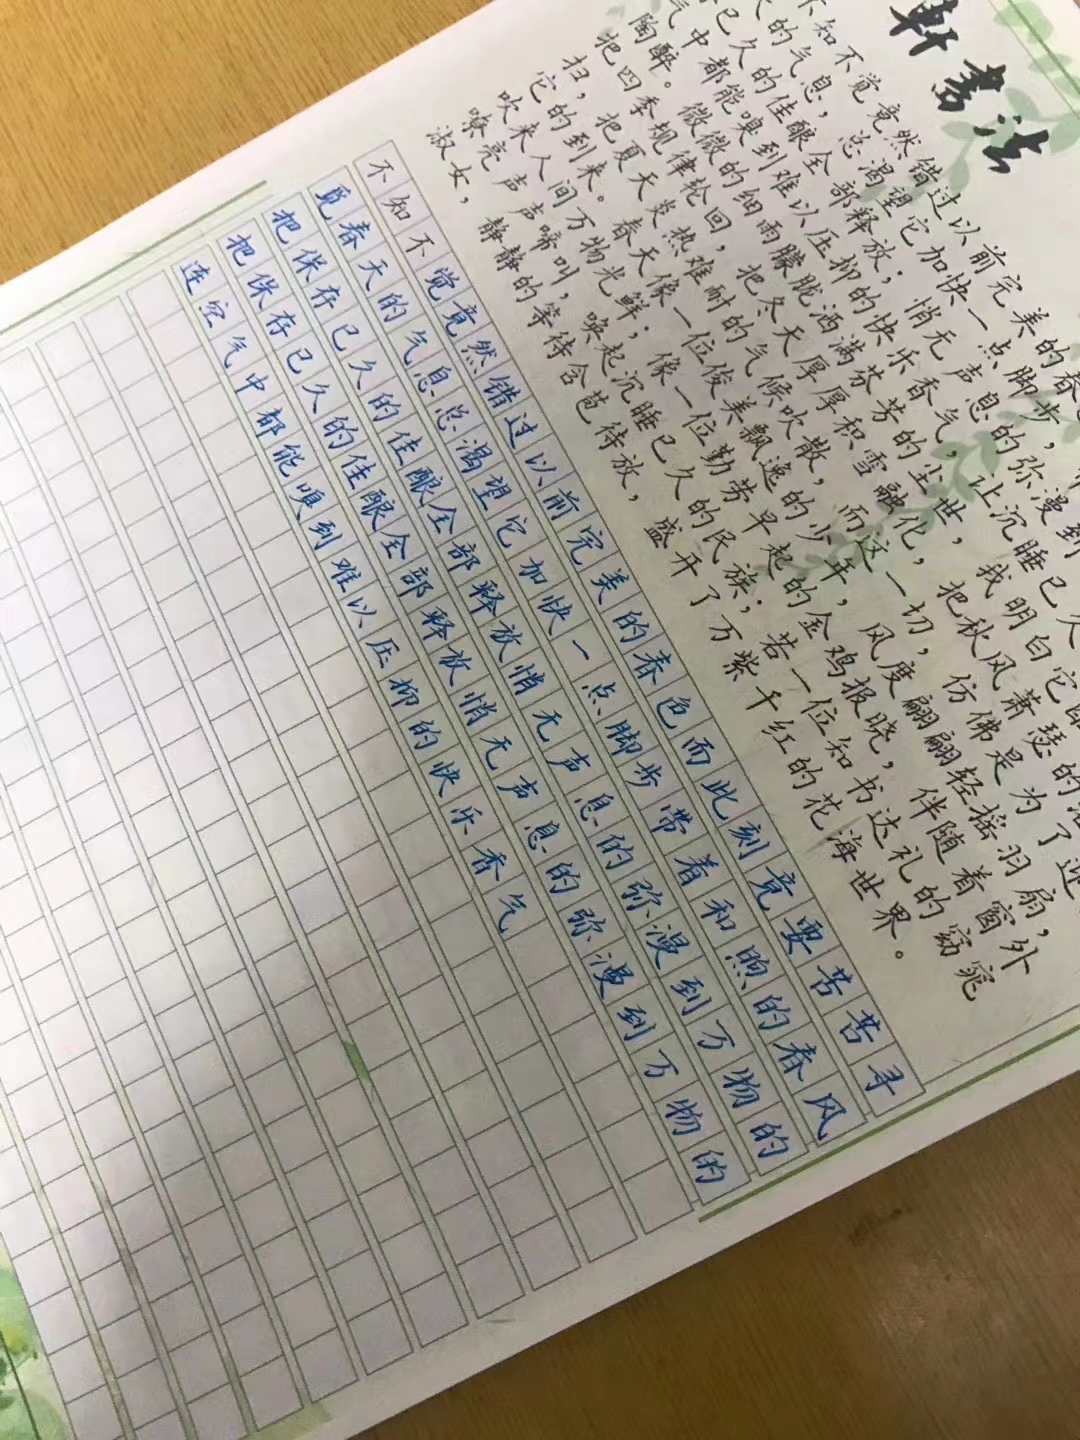 轩书法
不知不觉竟然错过以前完美的春
天的气息，总渴望它加快一点脚步，
已久的佳酿全部释放；悄无声息的弥漫到
气中都能嗅到难以压抑的快乐香气，让沉睡已久
陶醉。微微的细雨朦胧洒满芬芳的尘世，我明白它
把四季规律轮回，把冬天厚厚积雪融化，把秋风萧瑟的
扫，把夏天炎热难耐的气候吹散，而这一切，仿佛是为了迎
它的到来。春天像一位俊美飘逸的少年，风度翩翩轻摇羽扇，
吹来人间万物光鲜；像一位勤劳早起的金鸡报晓，伴随着窗外
嘹亮声声啼叫，唤起沉睡已久的民族；若一位知书达礼的窈窕
淑女，静静的等待含苞待放，盛开了万紫千红的花海世界。
不知不觉竟然错过以前完美的春色而此刻竟要苦苦寻
觅春天的气息总渴望它加快一点脚步带着和煦的春风
把保存已久的佳酿全部释放悄无声息的弥漫到万物的
把保存已久的佳酿全部释放悄无声息的弥漫到万物的
连空气中都能嗅到难以压抑的快乐香气